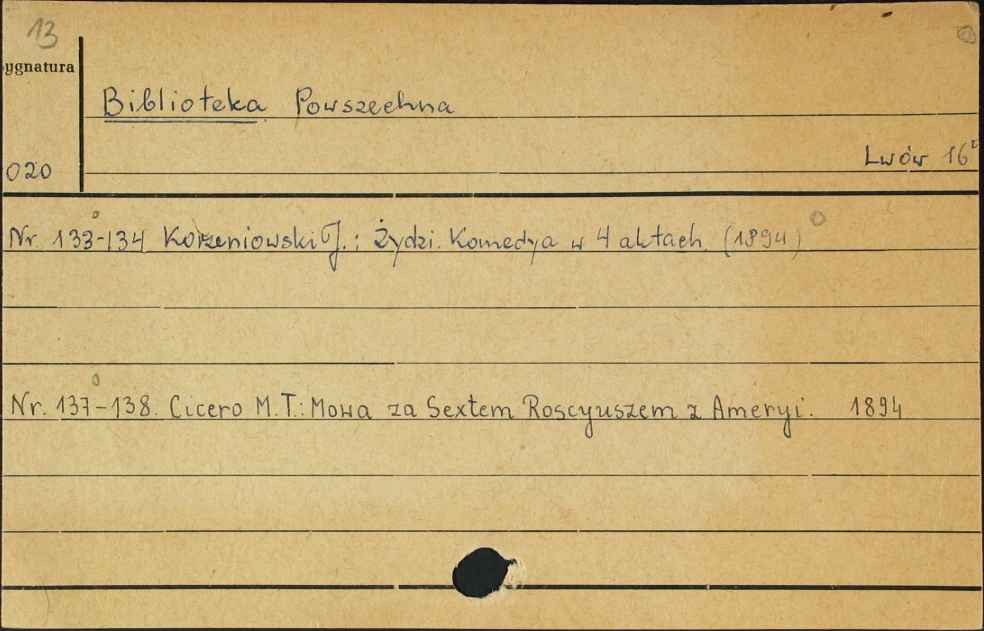 13
ygnatura
Biblioteka Powszechna
020
Lwów 16°
Nr. 133-134 Korzeniowski J.: Żydzi. Komedya w 4 aktach (1894)
Nr. 137-138. Cicero M.T.: Mowa za Sextem Roscyuszem z Ameryi. 1894